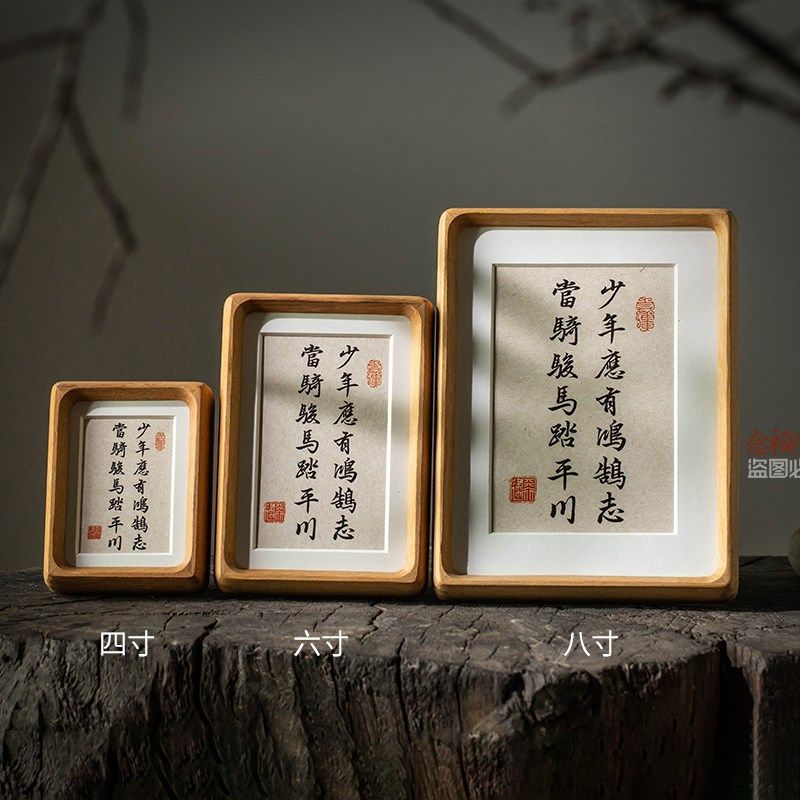 少年應有鴻鵠志
當騎駿馬踏平川
少年應有鴻鵠志
當騎駿馬踏平川
少年應有鴻鵠志
當騎駿馬踏平川
四寸
六寸
八寸
念福
盗图必